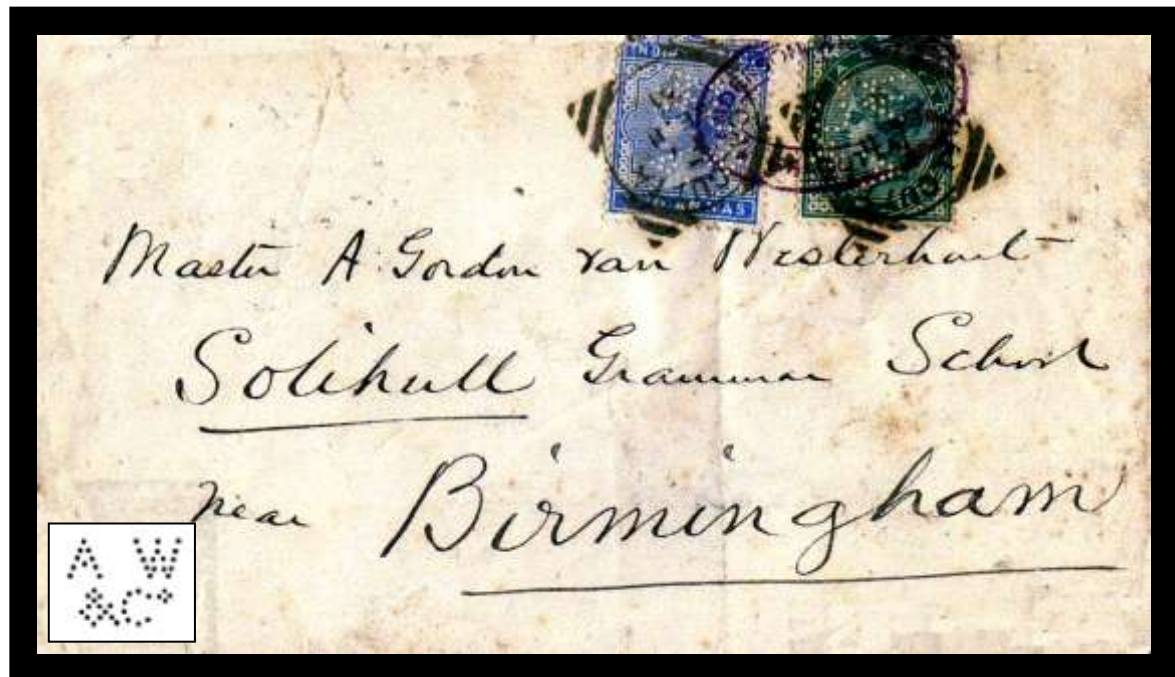 Master A. Gordon van Westerhout
Solihull Grammar School
near Birmingham
A W
&Co